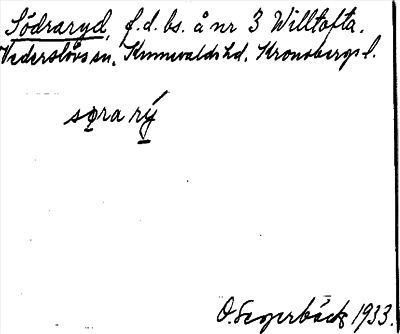 Södraryd, f.d. bs. å nr 3 Willtofta.
Vederslövs sn, Kinnevalds hd. Kronobergs l.
søra rý
O. Segerbäck 1933.